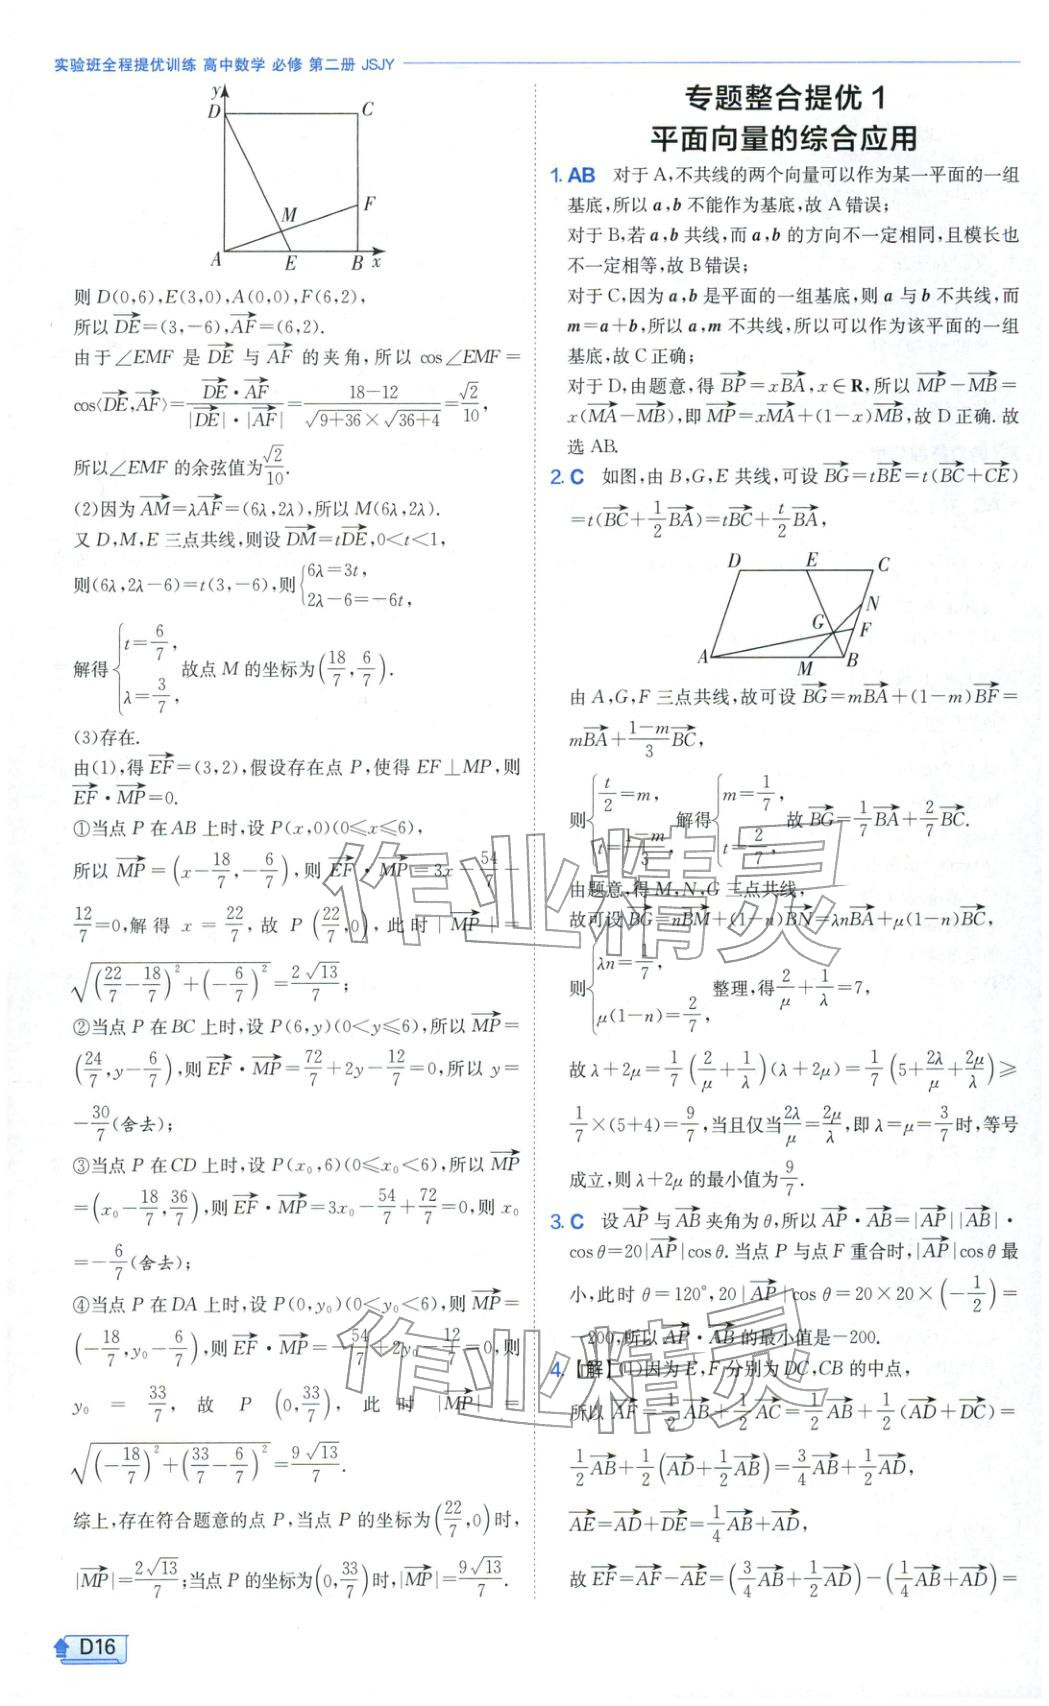 实验班全程提优训练 高中数学 必修 第二册 JSJY
y
D
C
M
F
A
E
B
x
则 D(0,6),E(3,0),A(0,0),F(6,2),
所以 DE→=(3,-6),AF→=(6,2).
由于∠EMF 是 DE→ 与 AF→ 的夹角,所以 cos∠EMF=
cos⟨DE→,AF→⟩=DE→·AF→/(|DE→|·|AF→|)=(18-12)/(√(9+36)×√(36+4))=√2/10,
所以∠EMF 的余弦值为√2/10.
(2)因为 AM→=λAF→=(6λ,2λ),所以 M(6λ,2λ).
又 D,M,E 三点共线,则设 DM→=tDE→,0<t<1,
则(6λ,2λ-6)=t(3,-6),则{6λ=3t, 2λ-6=-6t,
解得{t=6/7, λ=3/7, 故点 M 的坐标为(18/7,6/7).
(3)存在.
由(1),得 EF→=(3,2),假设存在点 P,使得 EF⊥MP,则
EF→·MP→=0.
①当点 P 在 AB 上时,设 P(x,0)(0≤x≤6),
所以 MP→=(x-18/7,-6/7),则 EF→·MP→=3x-54/7-
12/7=0,解得 x=22/7,故 P(22/7,0),此时|MP→|=
√((22/7-18/7)²+(-6/7)²)=2√13/7;
②当点 P 在 BC 上时,设 P(6,y)(0<y≤6),所以 MP→=
(24/7,y-6/7),则 EF→·MP→=72/7+2y-12/7=0,所以 y=
-30/7(舍去);
③当点 P 在 CD 上时,设 P(x₀,6)(0≤x₀<6),所以 MP→
=(x₀-18/7,36/7),则 EF→·MP→=3x₀-54/7+72/7=0,则 x₀
=-6/7(舍去);
④当点 P 在 DA 上时,设 P(0,y₀)(0<y₀<6),则 MP→=
(-18/7,y₀-6/7),则 EF→·MP→=-54/7+2y₀-12/7=0,则
y₀=33/7,故 P(0,33/7),此时|MP→|=
√((-18/7)²+(33/7-6/7)²)=9√13/7.
综上,存在符合题意的点 P,当点 P 的坐标为(22/7,0)时,
|MP→|=2√13/7;当点 P 的坐标为(0,33/7)时,|MP→|=9√13/7.
D16
专题整合提优 1
平面向量的综合应用
1. AB 对于 A,不共线的两个向量可以作为某一平面的一组
基底,所以 a,b 不能作为基底,故 A 错误;
对于 B,若 a,b 共线,而 a,b 的方向不一定相同,且模长也
不一定相等,故 B 错误;
对于 C,因为 a,b 是平面的一组基底,则 a 与 b 不共线,而
m=a+b,所以 a,m 不共线,所以可以作为该平面的一组
基底,故 C 正确;
对于 D,由题意,得 BP→=xBA→,x∈R,所以 MP→-MB→=
x(MA→-MB→),即 MP→=xMA→+(1-x)MB→,故 D 正确.故
选 AB.
2. C 如图,由 B,G,E 共线,可设 BG→=tBE→=t(BC→+CE→)
=t(BC→+1/2BA→)=tBC→+t/2BA→,
D
E
C
N
G
F
A
M
B
由 A,G,F 三点共线,故可设 BG→=mBA→+(1-m)BF→=
mBA→+(1-m)/3BC→,
则{t/2=m, t=(1-m)/3, 解得{m=1/7, t=2/7, 故 BG→=1/7BA→+2/7BC→.
由题意,得 M,N,G 三点共线,
故可设 BG→=nBM→+(1-n)BN→=λnBA→+μ(1-n)BC→,
则{λn=1/7, μ(1-n)=2/7, 整理,得2/μ+1/λ=7,
故 λ+2μ=1/7(2/μ+1/λ)(λ+2μ)=1/7(5+2λ/μ+2μ/λ)≥
1/7×(5+4)=9/7,当且仅当2λ/μ=2μ/λ,即 λ=μ=3/7时,等号
成立,则 λ+2μ 的最小值为9/7.
3. C 设 AP→ 与 AB→ 夹角为 θ,所以 AP→·AB→=|AP→||AB→|·
cos θ=20|AP→|cos θ.当点 P 与点 F 重合时,|AP→|cos θ 最
小,此时 θ=120°,20|AP→|cos θ=20×20×(-1/2)=
-200,所以 AP→·AB→ 的最小值是-200.
4. 【解】(1)因为 E,F 分别为 DC,CB 的中点,
所以 AF→=1/2AB→+1/2AC→=1/2AB→+1/2(AD→+DC→)=
1/2AB→+1/2(AD→+1/2AB→)=3/4AB→+1/2AD→,
AE→=AD→+DE→=1/4AB→+AD→,
故 EF→=AF→-AE→=(3/4AB→+1/2AD→)-(1/4AB→+AD→)=
作业精灵
作业精灵